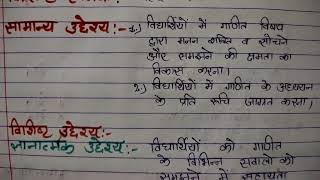 सामान्य उद्देश्य:- 1.) विद्यार्थियों में गणित विषय
द्वारा मनन शक्ति व सोचने
और समझने की क्षमता का
विकास करना।
2.) विद्यार्थियों में गणित के अध्ययन
के प्रति रूचि जाग्रत करना।
विशिष्ट उद्देश्य:-
ज्ञानात्मक उद्देश्य:- विद्यार्थियों को गणित
के विभिन्न सवालों को
समझने में सहायता